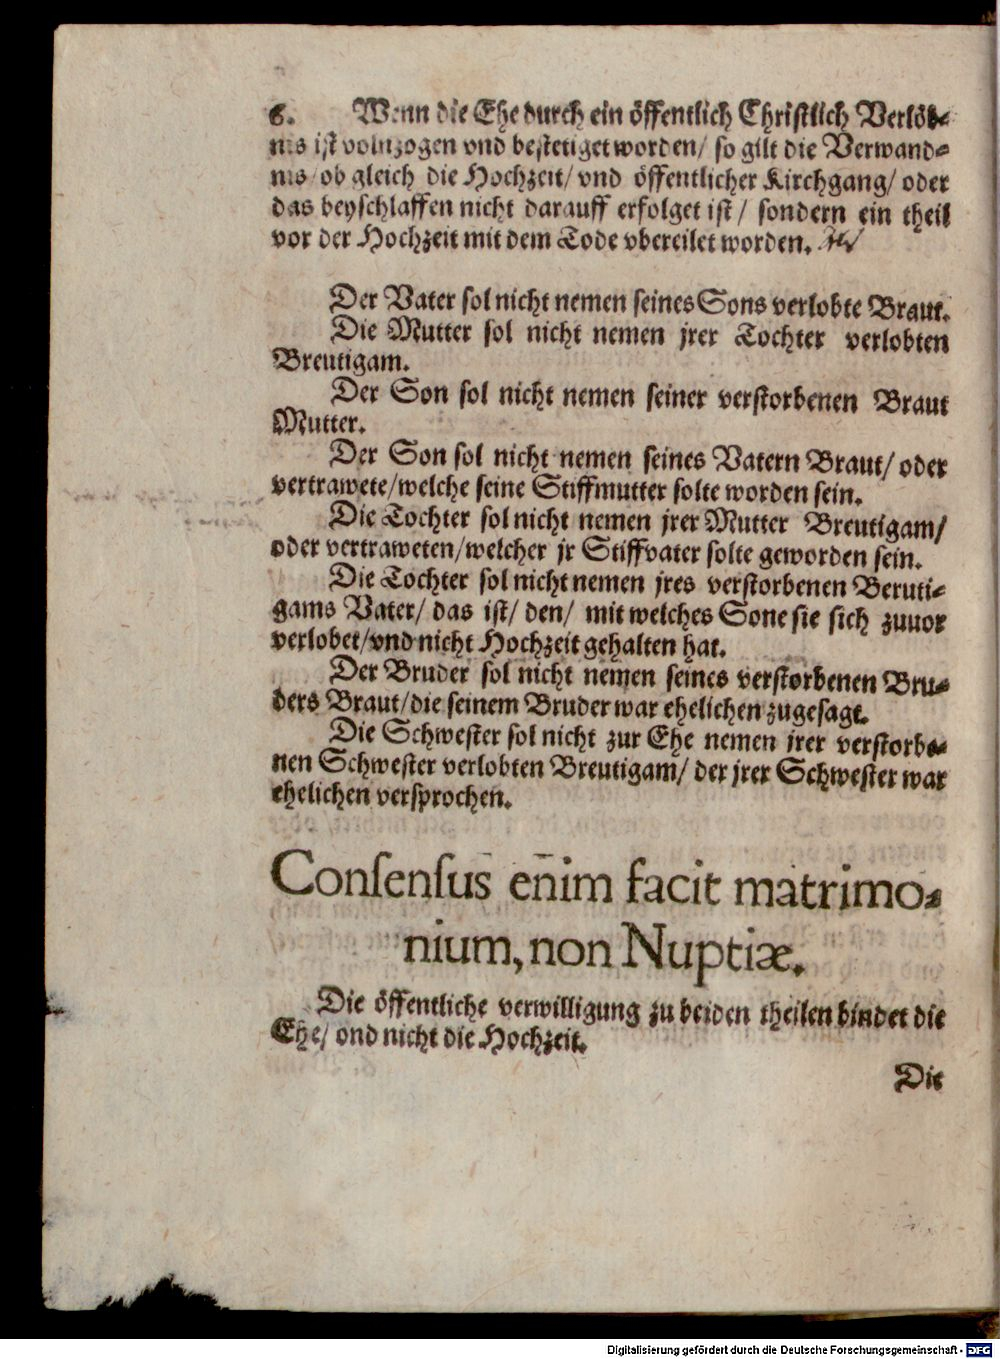 6. Wenn die Ehe durch ein öffentlich Christlich Verlöb-
nis ist volnzogen vnd bestetiget worden/ so gilt die Verwand-
nis/ ob gleich die Hochzeit/ vnd öffentlicher Kirchgang/ oder
das beyschlaffen nicht darauff erfolget ist/ sondern ein theil
vor der Hochzeit mit dem Tode vbereilet worden.
Der Vater sol nicht nemen seines Sons verlobte Braut.
Die Mutter sol nicht nemen jrer Tochter verlobten
Breutigam.
Der Son sol nicht nemen seiner verstorbenen Braut
Mutter.
Der Son sol nicht nemen seines Vatern Braut/ oder
vertrawete/ welche seine Stiffmutter solte worden sein.
Die Tochter sol nicht nemen jrer Mutter Breutigam/
oder vertraweten/ welcher jr Stiffvater solte geworden sein.
Die Tochter sol nicht nemen jres verstorbenen Beruti-
gams Vater/ das ist/ den/ mit welches Sone sie sich zuuor
verlobet/ vnd nicht Hochzeit gehalten hat.
Der Bruder sol nicht nemen seines verstorbenen Bru-
ders Braut/ die seinem Bruder war ehelichen zugesagt.
Die Schwester sol nicht zur Ehe nemen jrer verstorbe-
nen Schwester verlobten Breutigam/ der jrer Schwester war
ehelichen versprochen.
Conſenſus enim facit matrimo-
nium, non Nuptiæ.
Die öffentliche verwilligung zu beiden theilen bindet die
Ehe/ ond nicht die Hochzeit.
Die
Digitalisierung gefördert durch die Deutsche Forschungsgemeinschaft - DFG